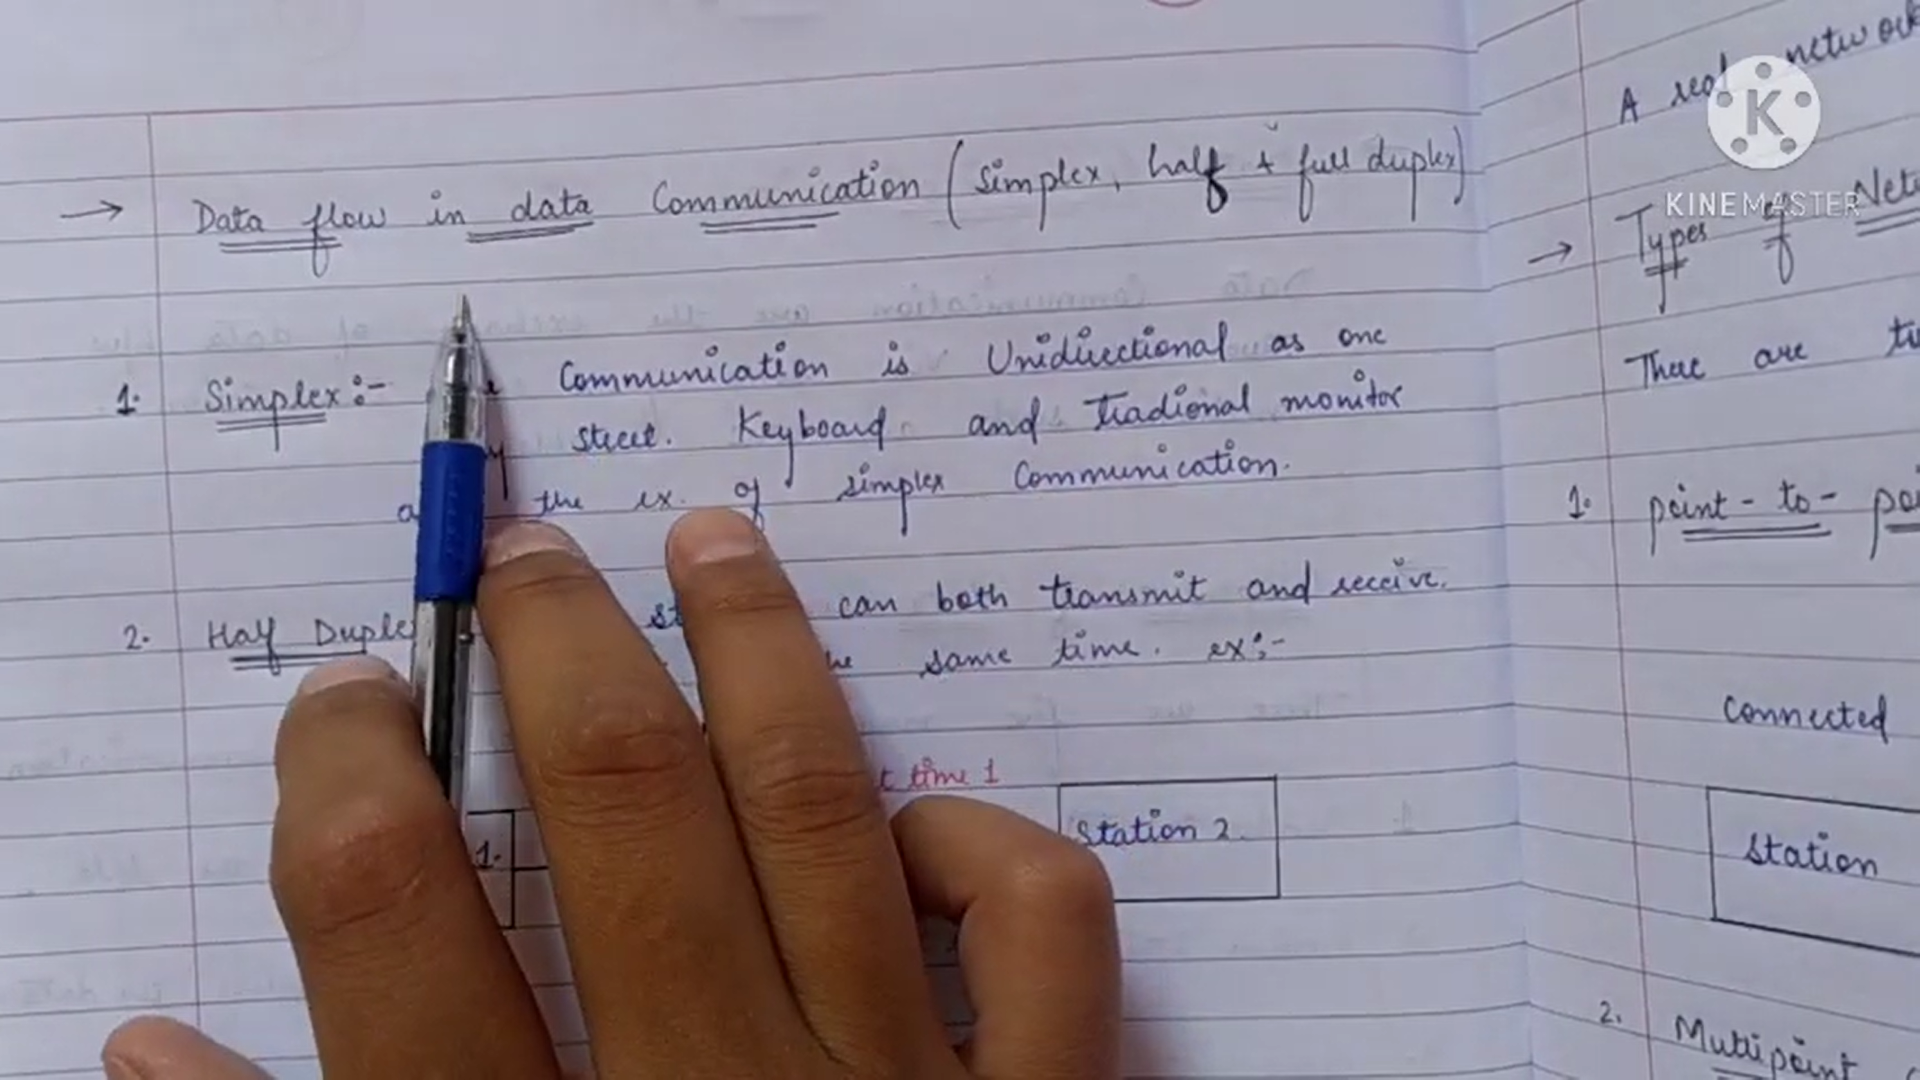 → Data flow in data Communication (Simplex, half & full duplex)
1. Simplex:- Communication is Unidirectional as one
street. Keyboard and tradional monitor
the ex. of simplex Communication.
2. Half Duple can both transmit and receive.
same time. ex:-
time 1
1.
Station 2.
A real network
→ Types of Net
There are
1. point-to-
Connected
Station
2. Multipoint
K
KINEMASTER